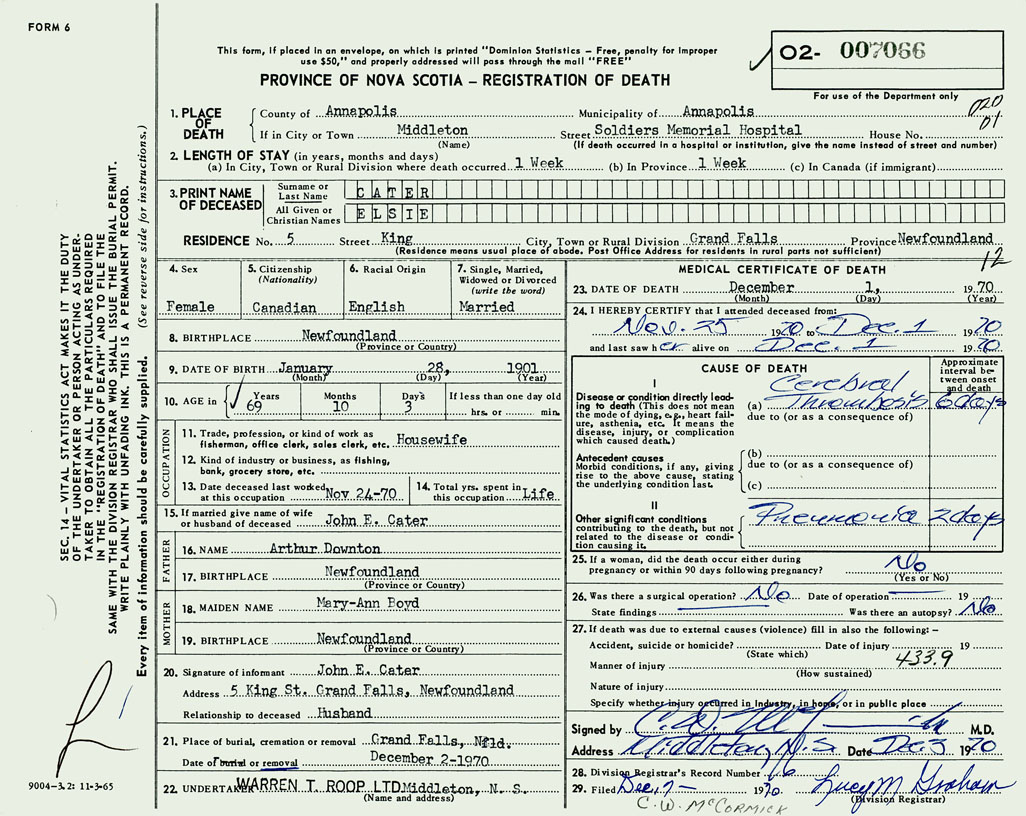 FORM 6
This form, if placed in an envelope, on which is printed "Dominion Statistics – Free, penalty for improper
use $50," and properly addressed will pass through the mail "FREE"
PROVINCE OF NOVA SCOTIA – REGISTRATION OF DEATH
02- 007066
For use of the Department only
020
01
SEC. 14 – VITAL STATISTICS ACT MAKES IT THE DUTY
OF THE UNDERTAKER OR PERSON ACTING AS UNDER-
TAKER TO OBTAIN ALL THE PARTICULARS REQUIRED
IN THE "REGISTRATION OF DEATH" AND TO FILE THE
SAME WITH THE DIVISION REGISTRAR WHO SHALL ISSUE THE BURIAL PERMIT.
WRITE PLAINLY WITH UNFADING INK. THIS IS A PERMANENT RECORD.
Every item of information should be carefully supplied. (See reverse side for instructions.)
1. PLACE OF DEATH
County of Annapolis Municipality of Annapolis
If in City or Town Middleton Street Soldiers Memorial Hospital House No.
(Name) (If death occurred in a hospital or institution, give the name instead of street and number)
2. LENGTH OF STAY (in years, months and days)
(a) In City, Town or Rural Division where death occurred 1 Week (b) In Province 1 Week (c) In Canada (if immigrant)
3. PRINT NAME OF DECEASED
Surname or Last Name CATER
All Given or Christian Names ELSIE
RESIDENCE No. 5 Street King City, Town or Rural Division Grand Falls Province Newfoundland
(Residence means usual place of abode. Post Office Address for residents in rural parts not sufficient)
12
4. Sex
Female
5. Citizenship
(Nationality)
Canadian
6. Racial Origin
English
7. Single, Married,
Widowed or Divorced
(write the word)
Married
8. BIRTHPLACE Newfoundland
(Province or Country)
9. DATE OF BIRTH January 28, 1901
(Month) (Day) (Year)
10. AGE in Years Months Days If less than one day old
69 10 3 hrs. or min.
OCCUPATION
11. Trade, profession, or kind of work as
fisherman, office clerk, sales clerk, etc. Housewife
12. Kind of industry or business, as fishing,
bank, grocery store, etc.
13. Date deceased last worked
at this occupation Nov 24-70
14. Total yrs. spent in
this occupation Life
15. If married give name of wife
or husband of deceased John E. Cater
FATHER
16. NAME Arthur Downton
17. BIRTHPLACE Newfoundland
(Province or Country)
MOTHER
18. MAIDEN NAME Mary-Ann Boyd
19. BIRTHPLACE Newfoundland
(Province or Country)
20. Signature of informant John E. Cater
Address 5 King St. Grand Falls, Newfoundland
Relationship to deceased Husband
21. Place of burial, cremation or removal Grand Falls, Nfld.
Date of burial or removal December 2-1970
22. UNDERTAKER WARREN T. ROOP LTD Middleton, N. S.
(Name and address)
9004-3.2: 11-3-65
MEDICAL CERTIFICATE OF DEATH
23. DATE OF DEATH December 1, 1970
(Month) (Day) (Year)
24. I HEREBY CERTIFY that I attended deceased from:
Nov. 25 1970 to Dec. 1 1970
and last saw her alive on Dec. 1 1970
CAUSE OF DEATH
Approximate
interval be-
tween onset
and death
I
Disease or condition directly lead-
ing to death (This does not mean
the mode of dying, e.g., heart fail-
ure, asthenia, etc. It means the
disease, injury, or complication
which caused death.)
(a) Cerebral Thrombosis 6 days
due to (or as a consequence of)
Antecedent causes
Morbid conditions, if any, giving
rise to the above cause, stating
the underlying condition last.
(b)
due to (or as a consequence of)
(c)
II
Other significant conditions
contributing to the death, but not
related to the disease or condi-
tion causing it.
Pneumonia 2 days
25. If a woman, did the death occur either during
pregnancy or within 90 days following pregnancy? No
(Yes or No)
26. Was there a surgical operation? No Date of operation 19
State findings Was there an autopsy? No
27. If death was due to external causes (violence) fill in also the following: –
Accident, suicide or homicide? Date of injury 19
(State which) 433.9
Manner of injury
(How sustained)
Nature of injury
Specify whether injury occurred in Industry, in home, or in public place
Signed by M.D.
Address Middleton, N.S. Date Dec 3 1970
28. Division Registrar's Record Number
29. Filed Dec. 7 – 1970. Lucy M Graham
(Division Registrar)
C. W. McCORMICK